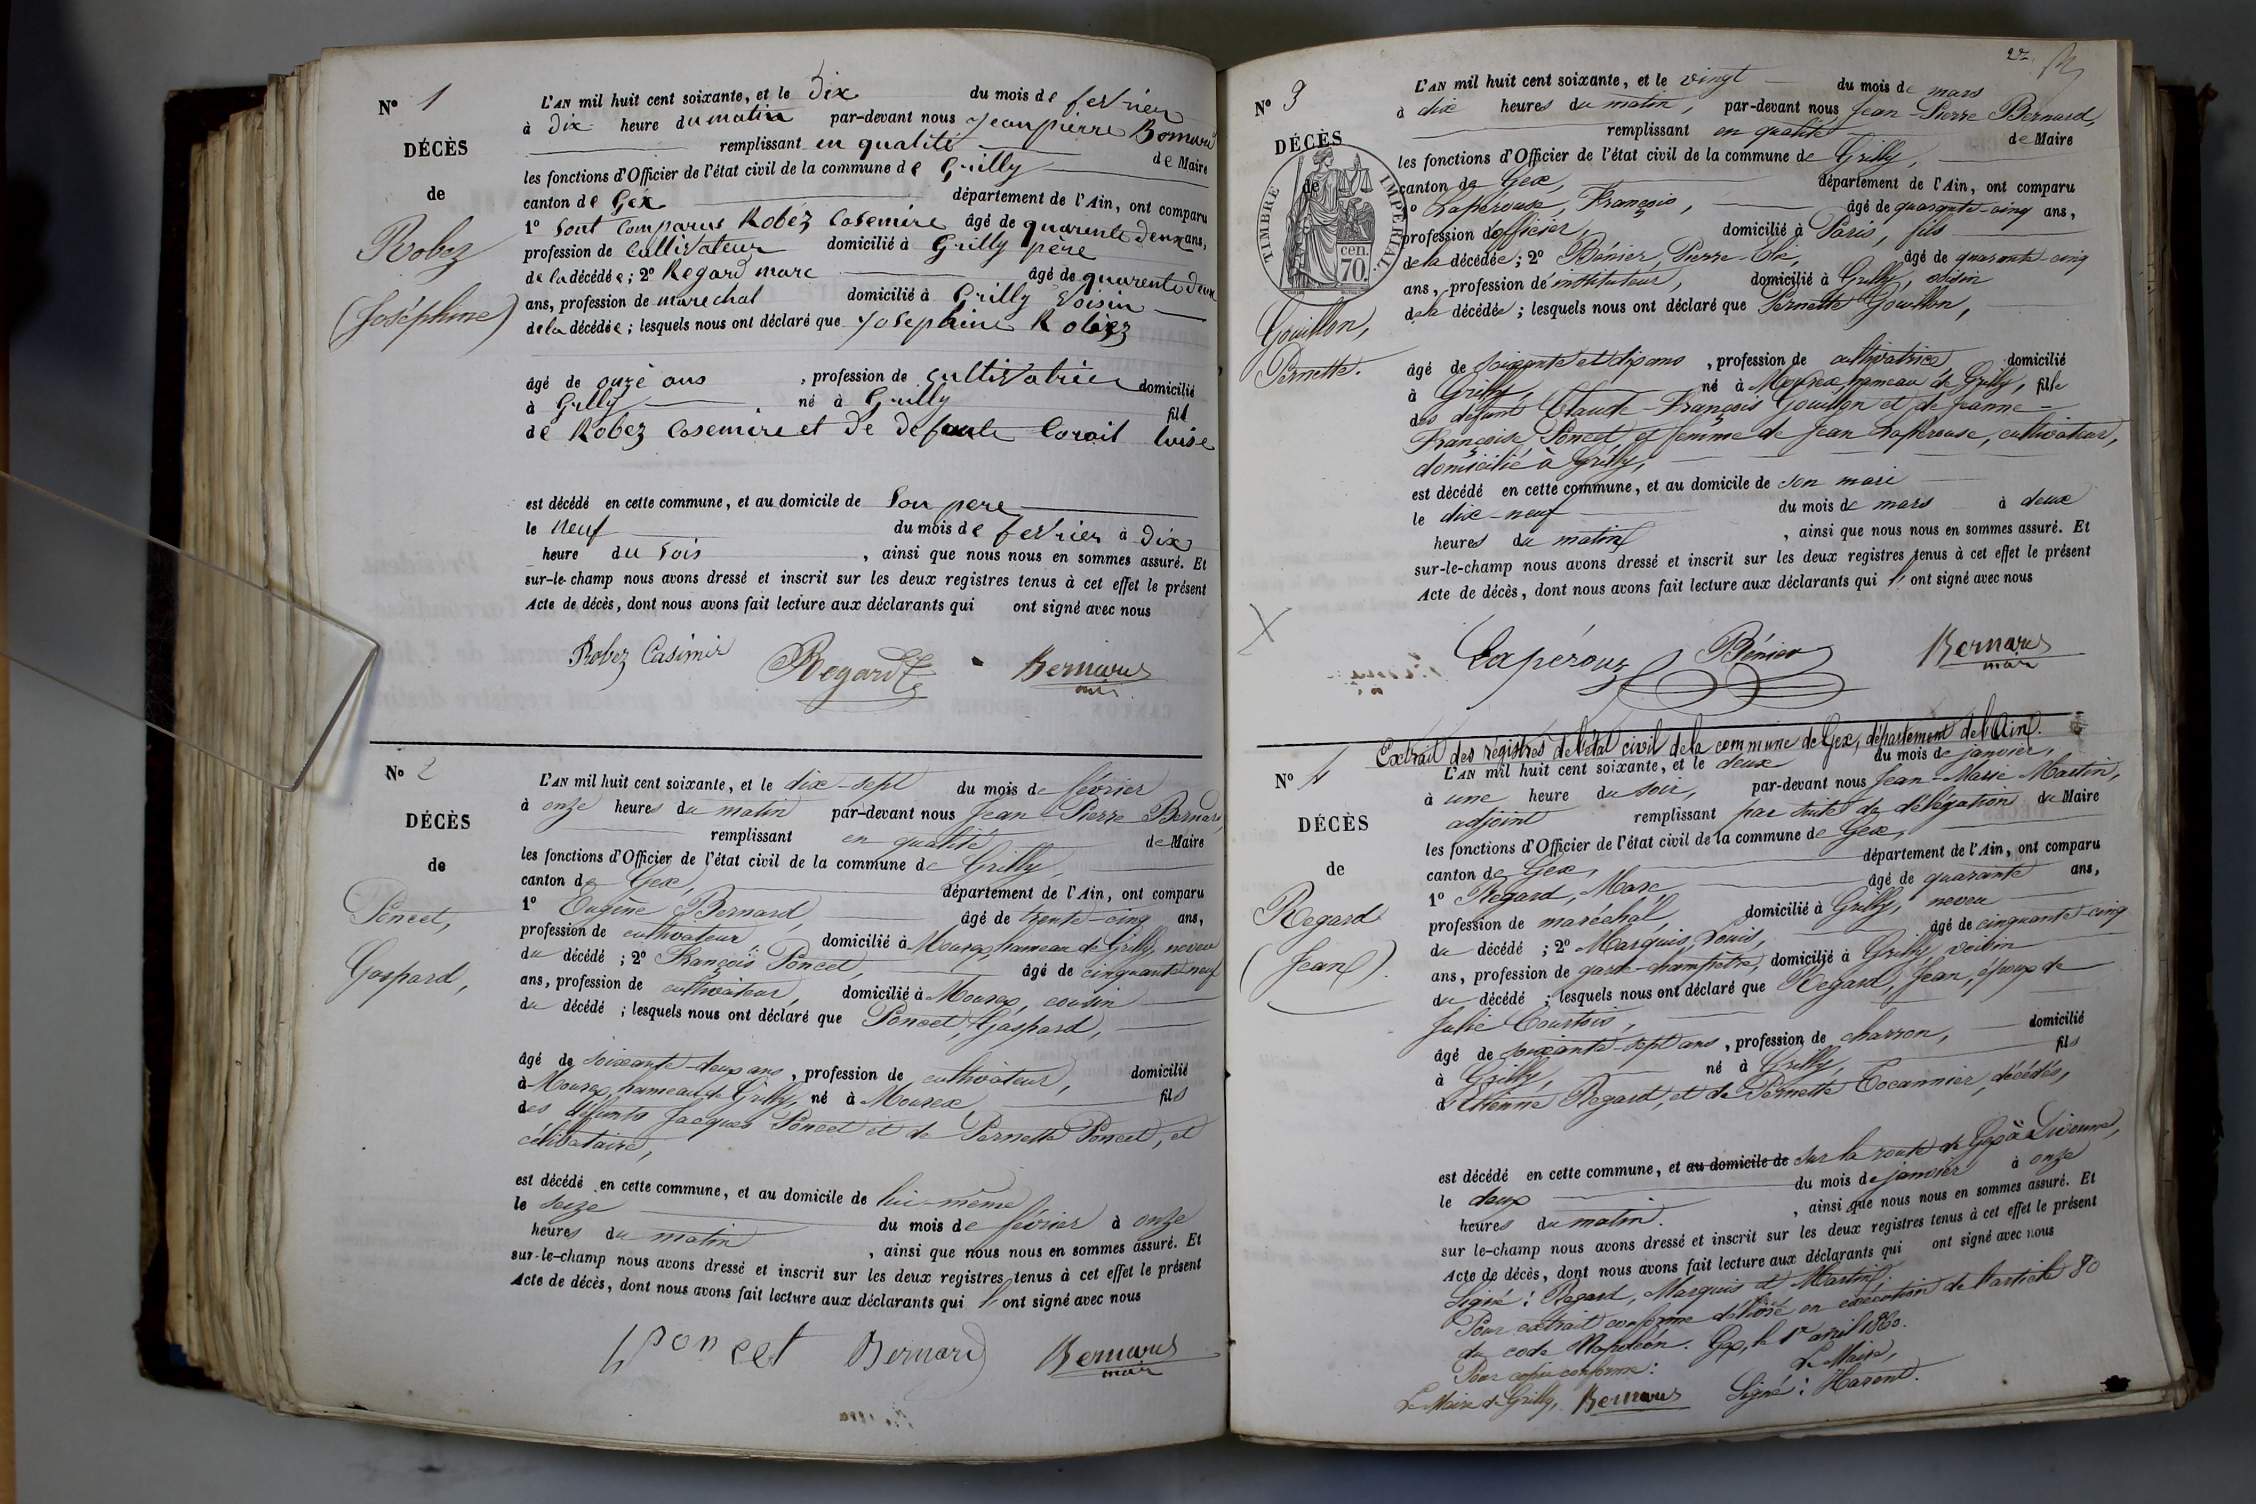 N° 1
DÉCÈS
de
Robez
(Joséphine)
L'AN mil huit cent soixante, et le Dix du mois de fevrier
à Dix heure du matin par-devant nous Jean pierre Bernard
remplissant en qualité de Maire
les fonctions d'Officier de l'état civil de la commune de Grilly
canton de Gex département de l'Ain, ont comparu
1° Sont Comparus Robéz Casemire âgé de quarente deux ans,
profession de Cultivateur domicilié à Grilly père
de la décédée; 2° Regard marc âgé de quarente deux
ans, profession de marechal domicilié à Grilly Voisin
de la décédée; lesquels nous ont déclaré que Josephine Robez
âgé de onze ans, profession de cultivatrice domicilié
à Grilly né à Grilly fille
de Robez Casemire et de defunte luise
est décédé en cette commune, et au domicile de Son pere
le Neuf du mois de fevrier à Dix
heure du Soir, ainsi que nous nous en sommes assuré. Et
sur-le-champ nous avons dressé et inscrit sur les deux registres tenus à cet effet le présent
Acte de décès, dont nous avons fait lecture aux déclarants qui ont signé avec nous
Robez Casimir Regard Bernard
maire
N° 2
DÉCÈS
de
Poncet,
Gaspard,
L'AN mil huit cent soixante, et le dix-sept du mois de février
à onze heures du matin par-devant nous Jean-Pierre Bernard,
remplissant en qualité de Maire
les fonctions d'Officier de l'état civil de la commune de Grilly,
canton de Gex, département de l'Ain, ont comparu
1° Eugène Bernard, âgé de trente-cinq ans,
profession de cultivateur, domicilié à Mourex, hameau de Grilly, neveu
du décédé; 2° François Poncet, âgé de cinquante-neuf
ans, profession de cultivateur, domicilié à Mourex, cousin
du décédé; lesquels nous ont déclaré que Poncet, Gaspard,
âgé de soixante-deux ans, profession de cultivateur, domicilié
à Mourex, hameau de Grilly, né à Mourex, fils
des défunts Jacques Poncet et de Pernette Poncet, et
célibataire,
est décédé en cette commune, et au domicile de lui-même
le seize du mois de février à onze
heures du matin, ainsi que nous nous en sommes assuré. Et
sur-le-champ nous avons dressé et inscrit sur les deux registres tenus à cet effet le présent
Acte de décès, dont nous avons fait lecture aux déclarants qui ont signé avec nous
Poncet Bernard Bernard
maire
22
N° 3
DÉCÈS
de
TIMBRE IMPÉRIAL.
cen.
70
Gouillon,
Pernette.
L'AN mil huit cent soixante, et le vingt du mois de mars
à dix heures du matin, par-devant nous Jean-Pierre Bernard,
remplissant en qualité de Maire
les fonctions d'Officier de l'état civil de la commune de Grilly,
canton de Gex, département de l'Ain, ont comparu
1° Lapérouse, François, âgé de quarante-cinq ans,
profession d'officier, domicilié à Paris, fils
de la décédée; 2° Bénier, Pierre-Elie, âgé de quarante-cinq
ans, profession d'instituteur, domicilié à Grilly, voisin
de la décédée; lesquels nous ont déclaré que Pernette Gouillon,
âgé de soixante et dix ans, profession de cultivatrice domicilié
à Grilly, né à Mourex, hameau de Grilly, fille
des défunt Claude-François Gouillon et de Jeanne-
Françoise Poncet, et femme de Jean Lapérouse, cultivateur,
domicilié à Grilly,
est décédé en cette commune, et au domicile de son mari
le dix-neuf du mois de mars à deux
heures du matin, ainsi que nous nous en sommes assuré. Et
sur-le-champ nous avons dressé et inscrit sur les deux registres tenus à cet effet le présent
Acte de décès, dont nous avons fait lecture aux déclarants qui ont signé avec nous
X
Lapérouz Bénier Bernard
maire
Extrait des régistres de l'état civil de la commune de Gex, département de l'Ain.
N° 4
DÉCÈS
de
Regard
(Jean).
L'AN mil huit cent soixante, et le deux du mois de janvier,
à une heure du soir, par-devant nous Jean-Marie Martin,
adjoint remplissant par suite de délégation du Maire
les fonctions d'Officier de l'état civil de la commune de Gex,
canton de Gex, département de l'Ain, ont comparu
1° Regard, Marc, âgé de quarante ans,
profession de maréchal, domicilié à Grilly, neveu
du décédé; 2° Marquis, Louis, âgé de cinquante-cinq
ans, profession de garde-champêtre, domicilié à Grilly, voisin
du décédé; lesquels nous ont déclaré que Regard, Jean, époux de
Julie Courtois,
âgé de soixante-sept ans, profession de charron, domicilié
à Grilly, né à Grilly, fils
d'Etienne Regard, et de Pernette Tocannier, décédés,
est décédé en cette commune, et au domicile de sur la route de Gex à Divonne,
le deux du mois de janvier à onze
heures du matin., ainsi que nous nous en sommes assuré. Et
sur le-champ nous avons dressé et inscrit sur les deux registres tenus à cet effet le présent
Acte de décès, dont nous avons fait lecture aux déclarants qui ont signé avec nous
Signé: Regard, Marquis et Martin.
Pour extrait conforme délivré en exécution de l'article 80
du code Napoléon. Gex, le 1er avril 1860.
Pour copie conforme: Le Maire,
Le Maire de Grilly, Bernard Signé: Harent.